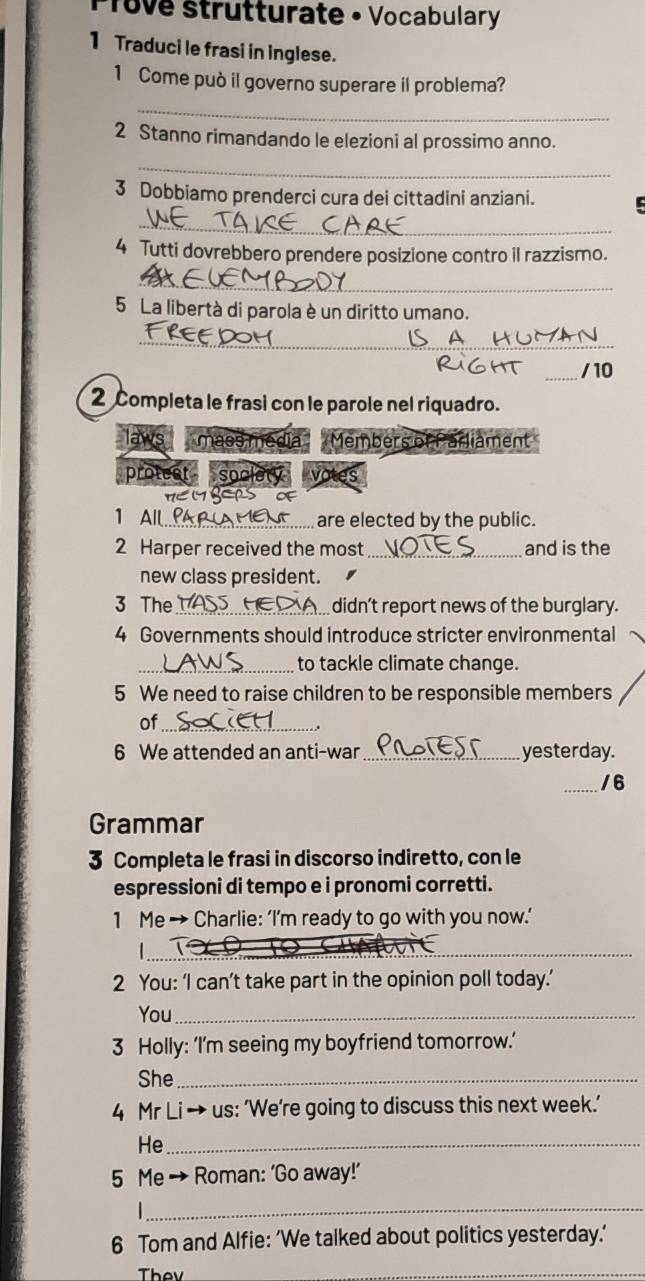 Prove strutturate • Vocabulary
1 Traduci le frasi in inglese.
1 Come può il governo superare il problema?
2 Stanno rimandando le elezioni al prossimo anno.
3 Dobbiamo prenderci cura dei cittadini anziani.
WE TAKE CARE
4 Tutti dovrebbero prendere posizione contro il razzismo.
EVEMBODY
5 La libertà di parola è un diritto umano.
FREEDOM IS A HUMAN
RIGHT /10
2 Completa le frasi con le parole nel riquadro.
laws mass media Members of Parliament
protest society votes
MEMBERS OF
1 All PARLAMENT are elected by the public.
2 Harper received the most VOTES and is the
new class president.
3 The MASS MEDIA didn't report news of the burglary.
4 Governments should introduce stricter environmental
LAWS to tackle climate change.
5 We need to raise children to be responsible members
of .
6 We attended an anti-war PROTEST yesterday.
/6
Grammar
3 Completa le frasi in discorso indiretto, con le
espressioni di tempo e i pronomi corretti.
1 Me → Charlie: 'I'm ready to go with you now.'
I TOLD TO CHARLIE
2 You: 'I can't take part in the opinion poll today.'
You
3 Holly: 'I'm seeing my boyfriend tomorrow.'
She
4 Mr Li → us: 'We're going to discuss this next week.'
He
5 Me → Roman: 'Go away!'
I
6 Tom and Alfie: 'We talked about politics yesterday.'
They